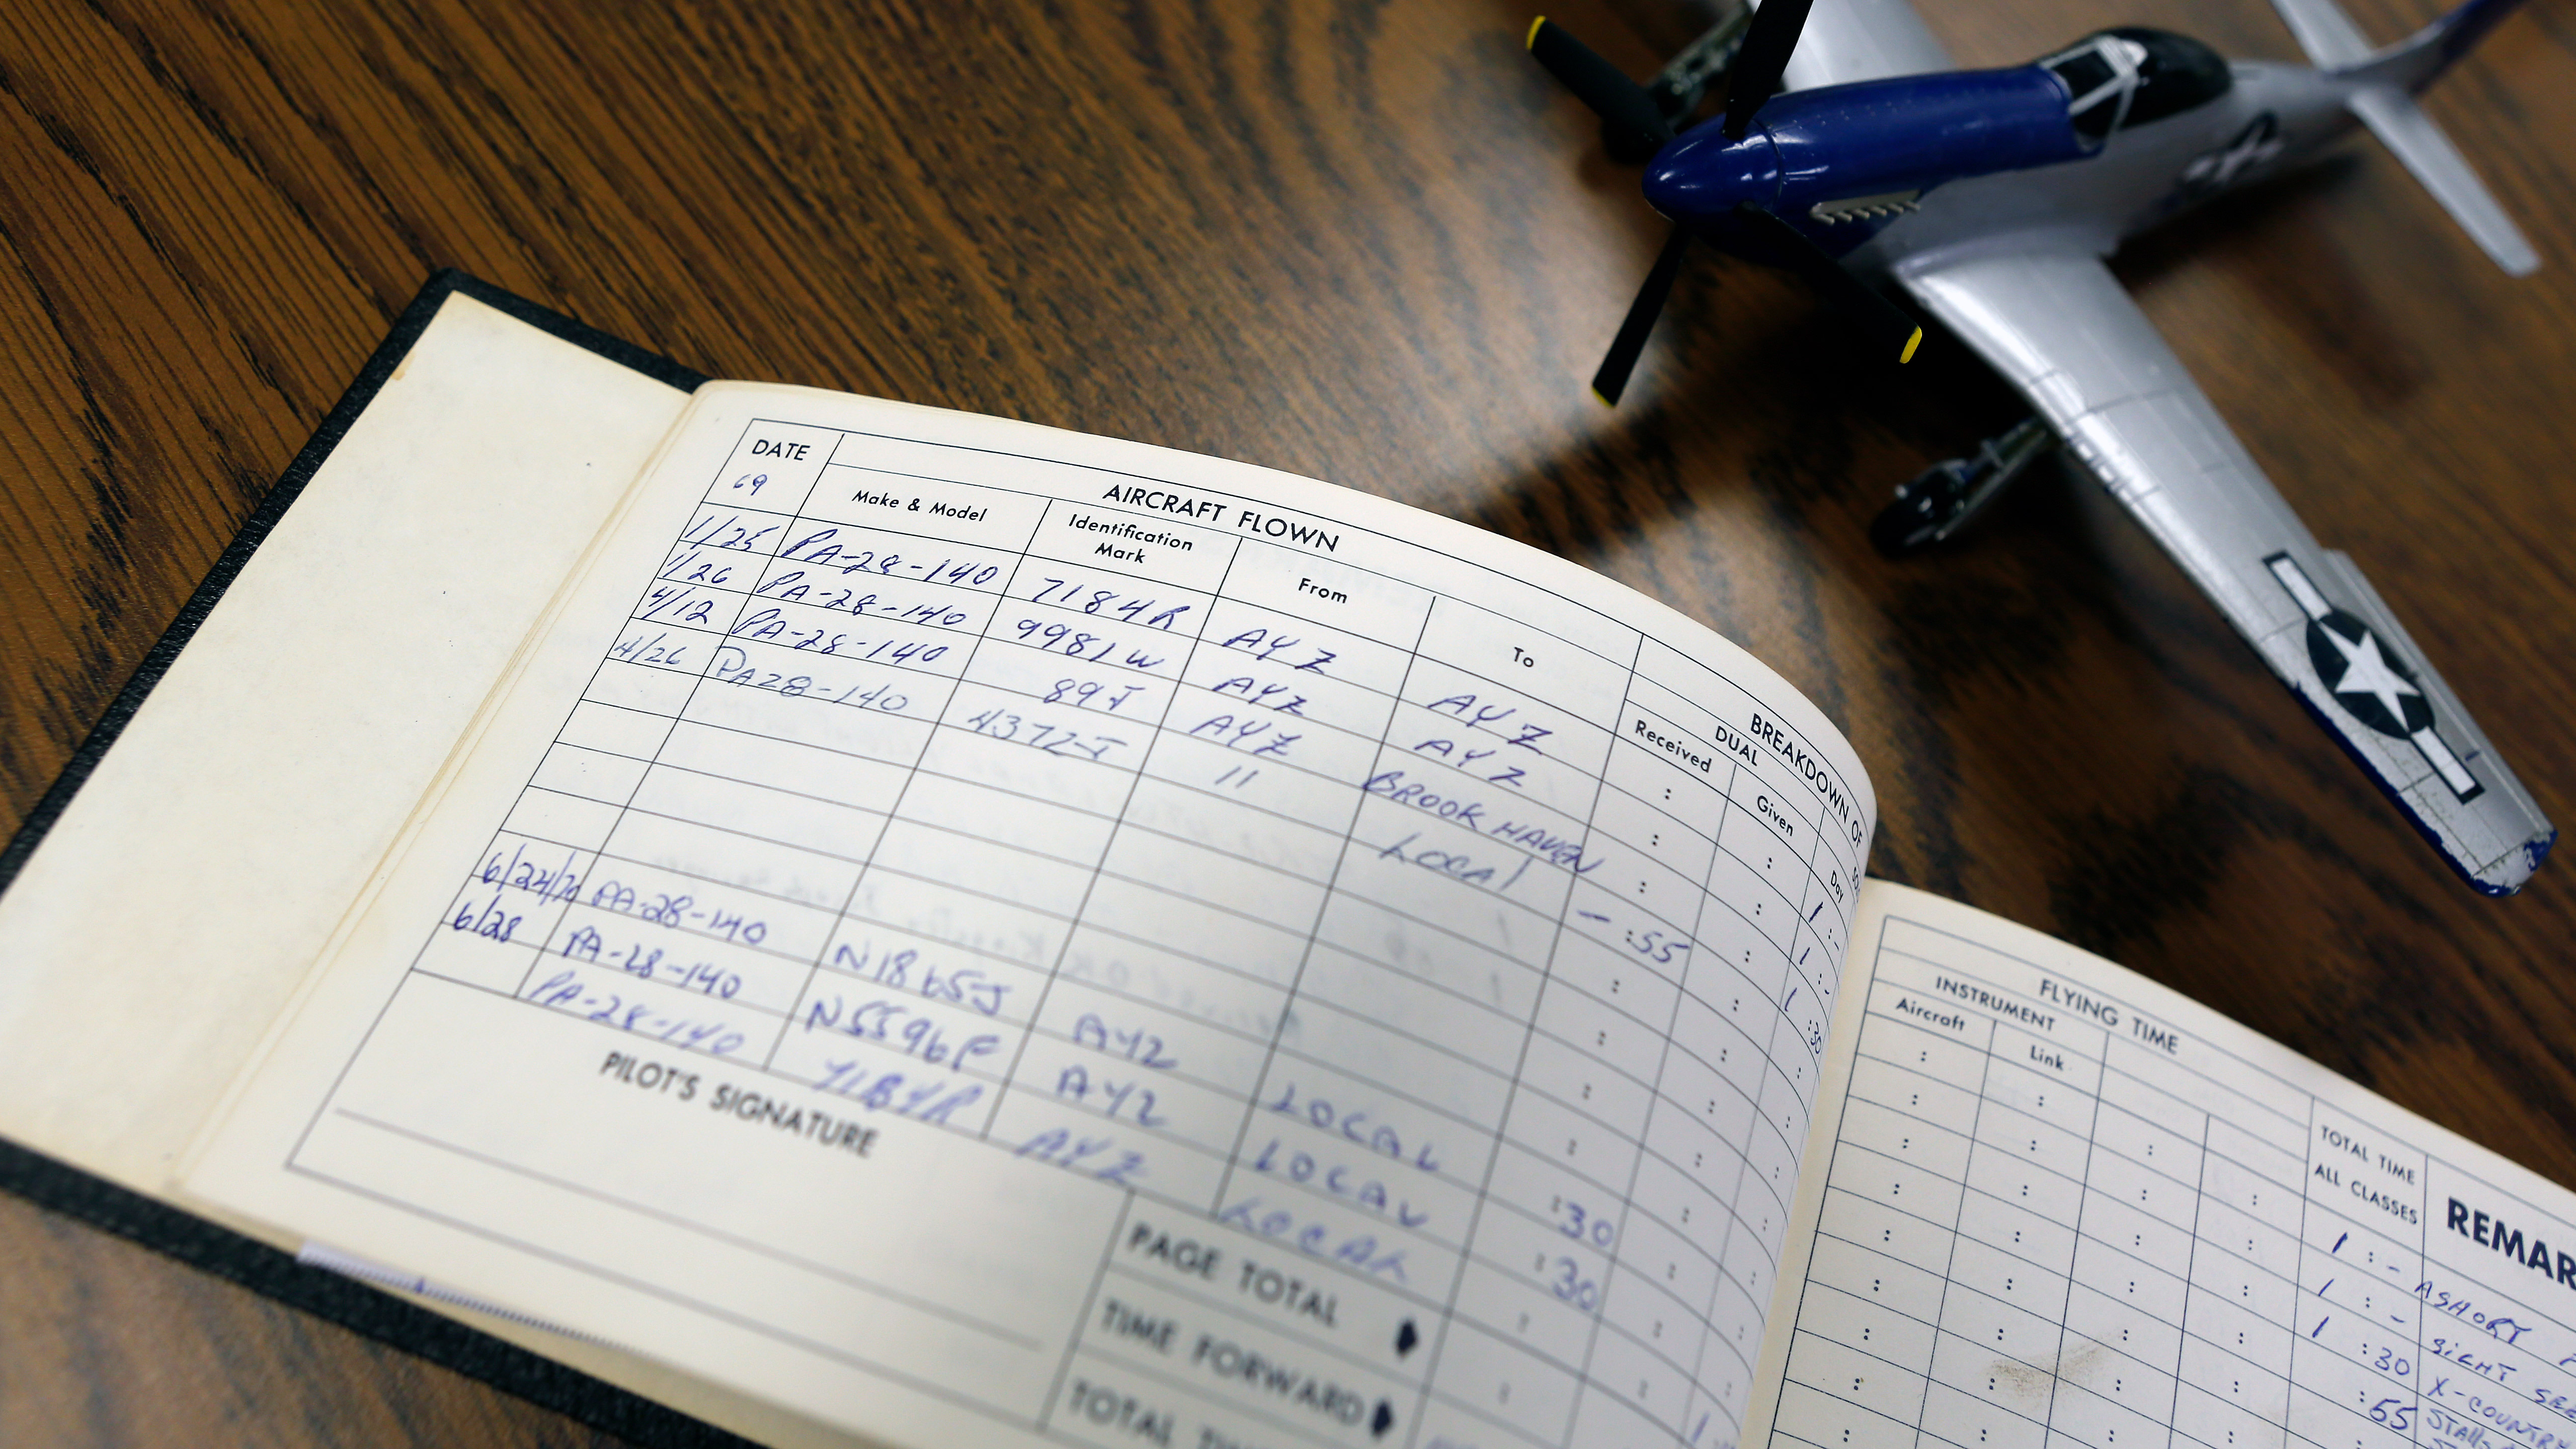 DATE 69
AIRCRAFT FLOWN
Make & Model
Identification Mark
From
To
BREAKDOWN OF
DUAL
Received
Given
Day
1/25 PA-28-140 7184R AYZ AYZ : : 1:-
1/26 PA-28-140 9981W AYZ AYZ : : 1:-
4/12 PA-28-140 89J AYZ BROOKHAVEN : : 1:30
4/26 PA28-140 4372J " LOCAL - :55
6/24/70 PA-28-140 N1865J AYZ LOCAL :30
6/28 PA-28-140 N5596F AYZ LOCAL :30
PA-28-140 AYZ LOCAL
PILOT'S SIGNATURE
PAGE TOTAL
TIME FORWARD
TOTAL
FLYING TIME
INSTRUMENT
Aircraft
Link
TOTAL TIME
ALL CLASSES
REMAR
1:- A SHORT
1:- SIGHT SEE
1:30 X-COUNTRY
:55 STALL